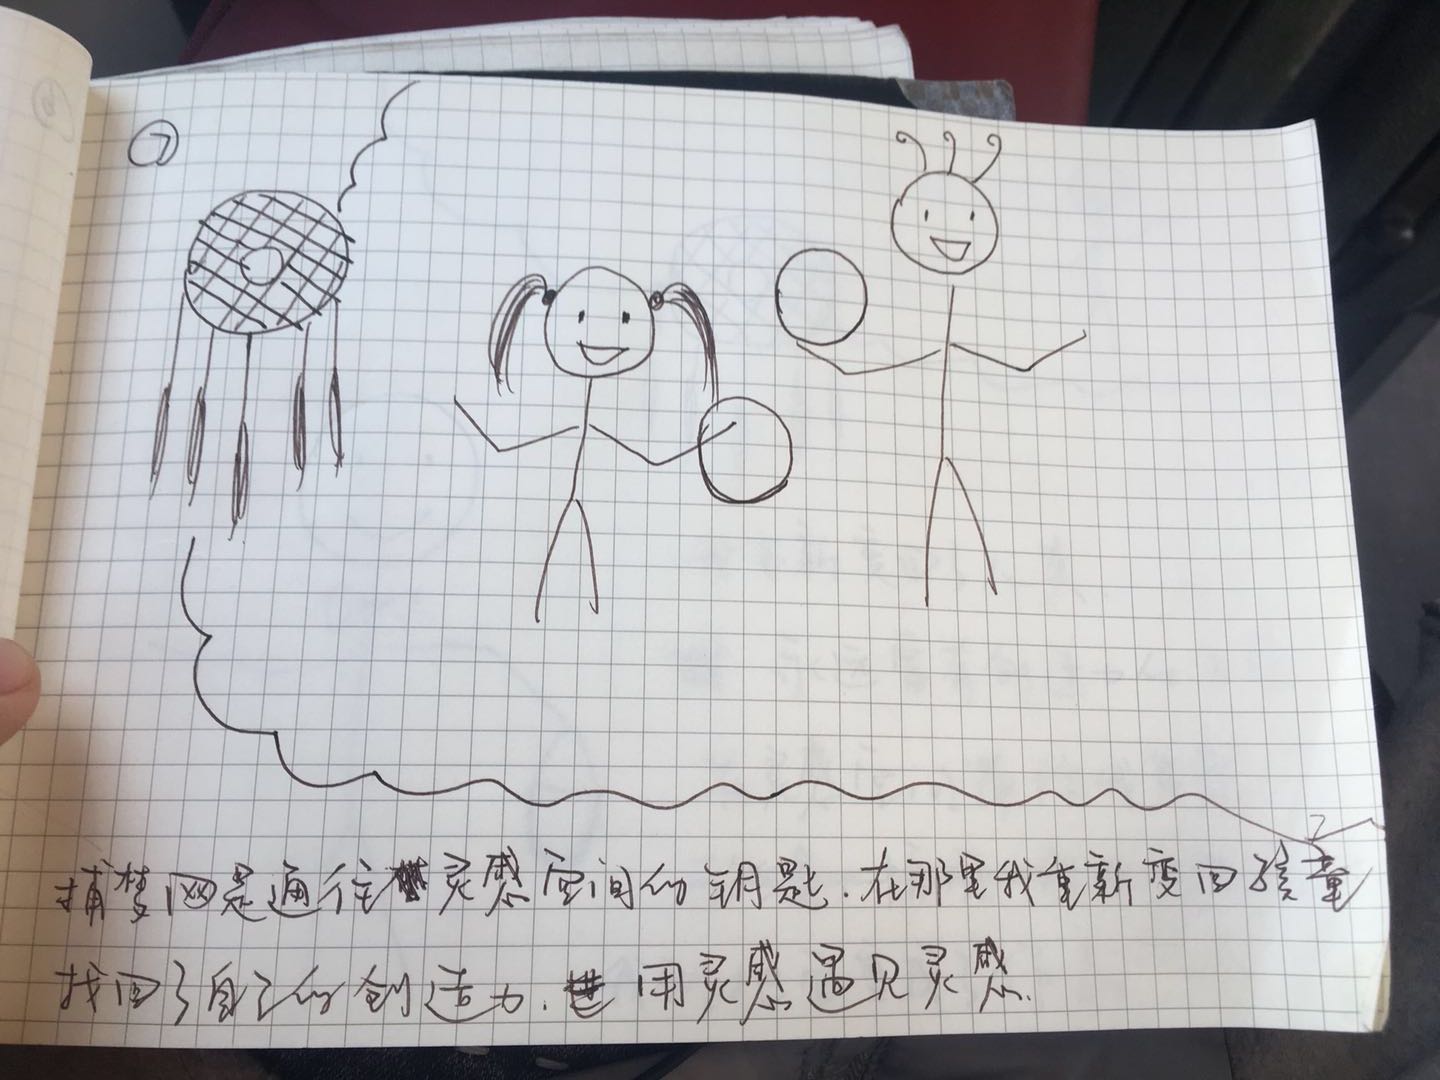 ⑦
捕梦网是通往灵感空间的钥匙.在那里我重新变回孩童
找回了自己的创造力.用灵感遇见灵感.